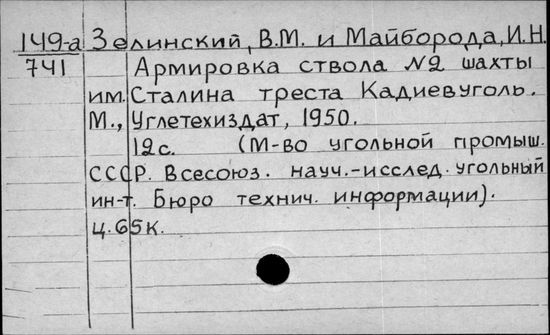 149-а Зелинский, В.М. и Майборода, И.Н.
741 Армировка ствола №2 шахты
им. Сталина треста Кадиевуголь.
М., Углетехиздат, 1950.
12с. (М-во угольной промыш.
СССР. Всесоюз. науч.-исслед. угольный
ин-т. Бюро технич. информации).
ц. 65к.